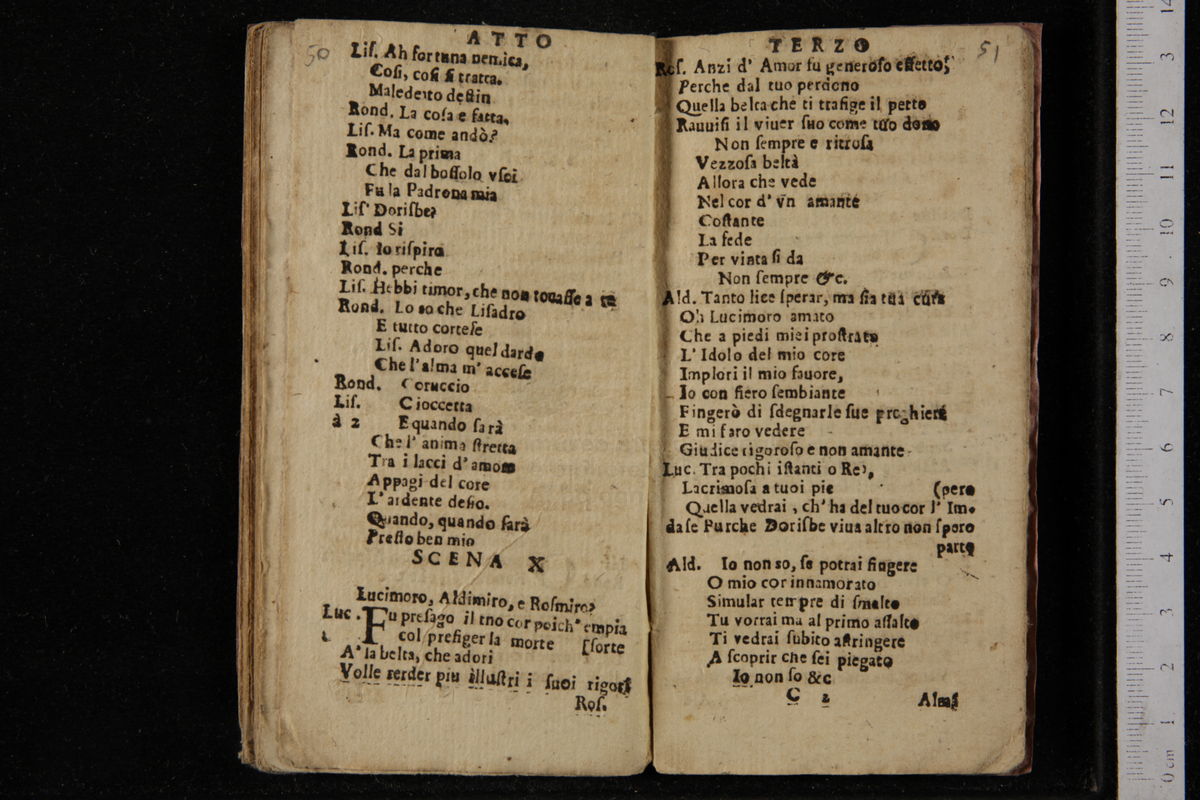 50
ATTO
Liſ. Ah fortuna nemica,
Coſi, coſi ſi tratta.
Maledetto deſtin
Rond. La coſa e fatta,
Liſ. Ma come andò?
Rond. La prima
Che dal boſſolo vſci
Fu la Padrona mia
Liſ' Dorisbe?
Rond Si
Liſ. Io riſpiro
Rond. perche
Liſ. Hebbi timor, che non toccaſſe a te
Rond. Lo so che Liſadro
E tutto corteſe
Liſ. Adoro quel dardo
Che l'alma m' acceſe
Rond. Coruccio
Liſ. Cioccetta
à 2 E quando ſarà
Che l' anima ſtretta
Tra i lacci d' amore
Appagi del core
L' ardente deſio.
Quando, quando ſarà
Preſto ben mio
SCENA X
Lucimoro, Aldimiro, e Roſmiro?
Luc. Fu preſago il tno cor poich' empia
col prefiger la morte [ſorte
A' la belta, che adori
Volle render piu illuſtri i ſuoi rigori
Roſ.
TERZO
51
Roſ. Anzi d' Amor fu generoſo effetto;
Perche dal tuo perdono
Quella belta che ti trafige il petto
Rauuiſi il viuer ſuo come tuo dono
Non ſempre e ritroſa
Vezzoſa beltà
Allora che vede
Nel cor d' vn amante
Coſtante
La fede
Per vinta ſi da
Non ſempre &c.
Ald. Tanto lice ſperar, ma ſia tua cura
Oh Lucimoro amato
Che a piedi miei proſtrato
L' Idolo del mio core
Implori il mio fauore,
Io con fiero ſembiante
Fingerò di ſdegnar le ſue preghiere
E mi faro vedere
Giudice rigoroſo e non amante
Luc. Tra pochi iſtanti o Re,
Lacrimoſa a tuoi pie (pero
Quella vedrai, ch' ha del tuo cor l' Im-
da ſe Purche Dorisbe viua altro non ſpero
parto
Ald. Io non so, ſe potrai fingere
O mio cor innamorato
Simular tempre di ſmalto
Tu vorrai ma al primo aſſalto
Ti vedrai ſubito aſtringere
A ſcoprir che ſei piegato
Io non ſo &c
C 2
Almi